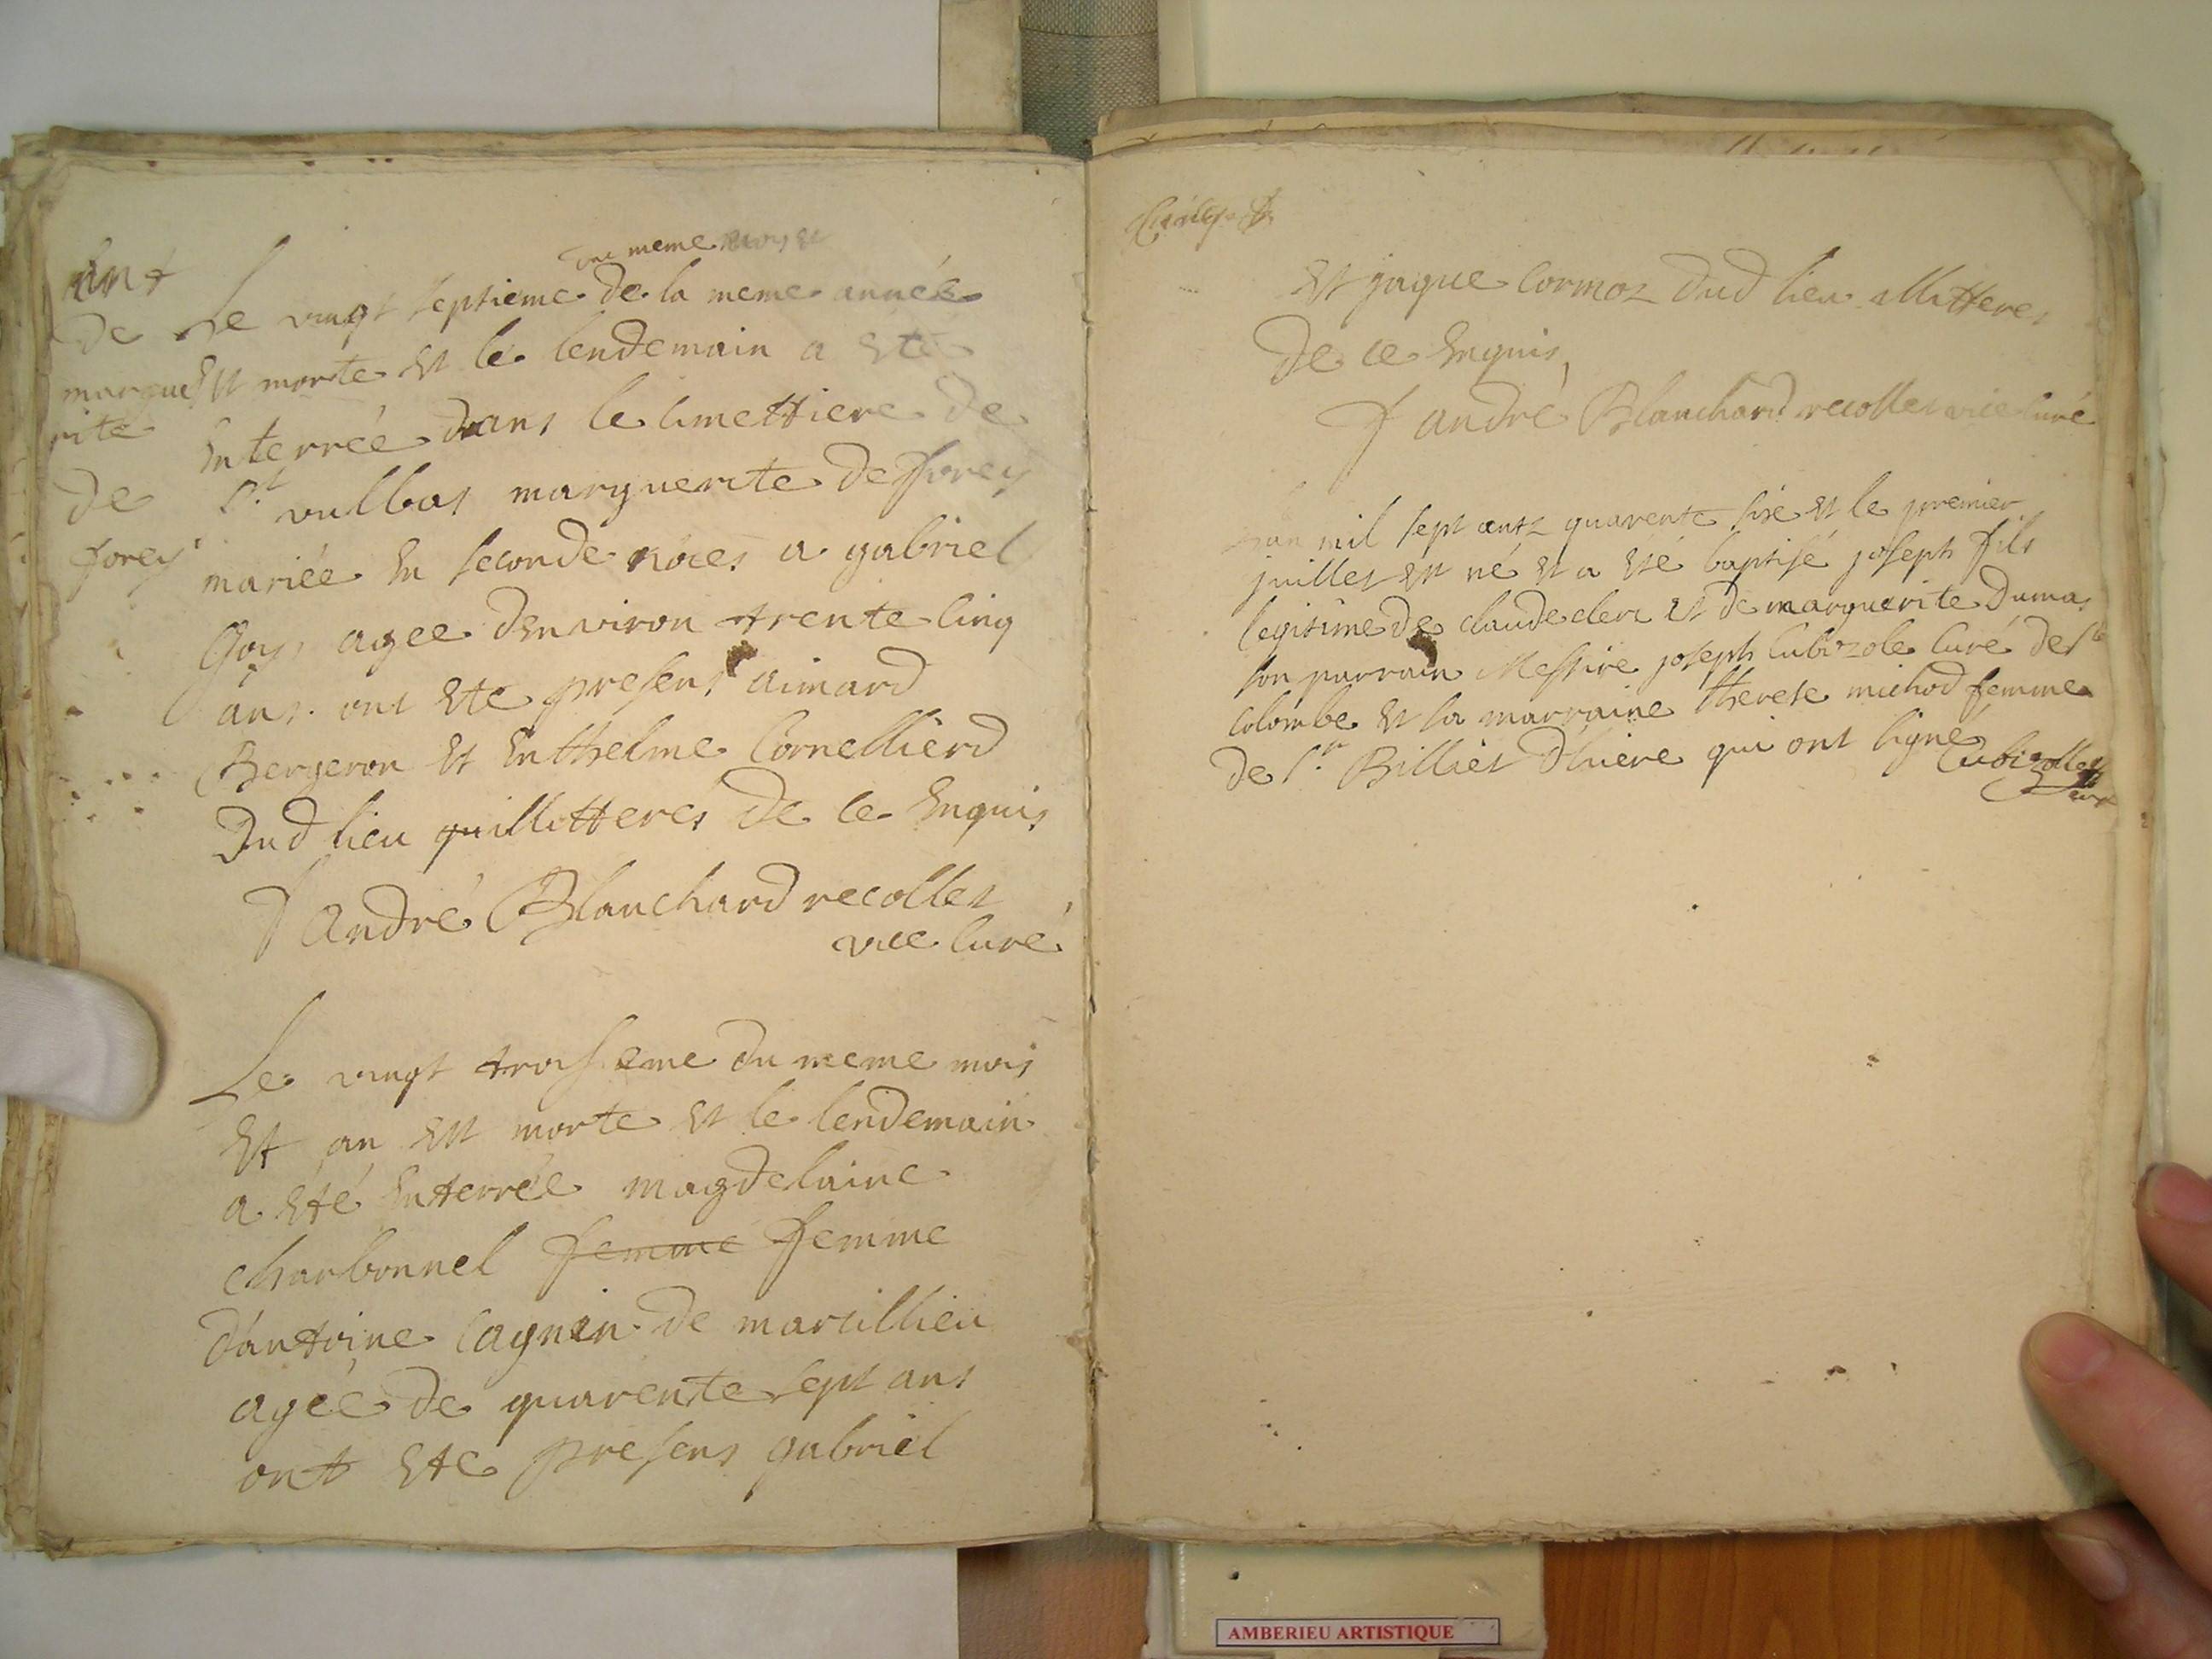 de
margue
rite
de
forey
du meme moys et
Le vingt septieme de la meme année
Est morte et le lendemain a eté
Enterrée dans le simettiere de
St vulbas marguerite de forey
mariée En seconde noces a gabriel
Goy agee d'environ trente cinq
ans. ont ete presens aimard
Bergeron et Enthelme Cornellierd
Dud lieu quillitteres de ce Enquis
f André Blanchard recollet
vice curé
Le vingt troiseme du meme mois
Et an est morte et le lendemain
a été Enterrée magdelaine
charbonnel femme femme
d'antoine Cagnin de marcillieu
agée de quarente sept ans
ont ete presens gabriel
Et jaque Cormoz dud lieu illitteres
de ce Enquis,
f andré Blanchard recollet vice curé
L'an mil sept centz quarente six et le premier
juillet est né et a été baptisé joseph fils
legitime de claude clerc et de marguerite Dumas
son parrain Messire joseph Cubizole curé de Ste
Colombe et la marraine therese michod femme
de Sr Billiet d'hiere qui ont signé
Cubizolles
curé
AMBERIEU ARTISTIQUE